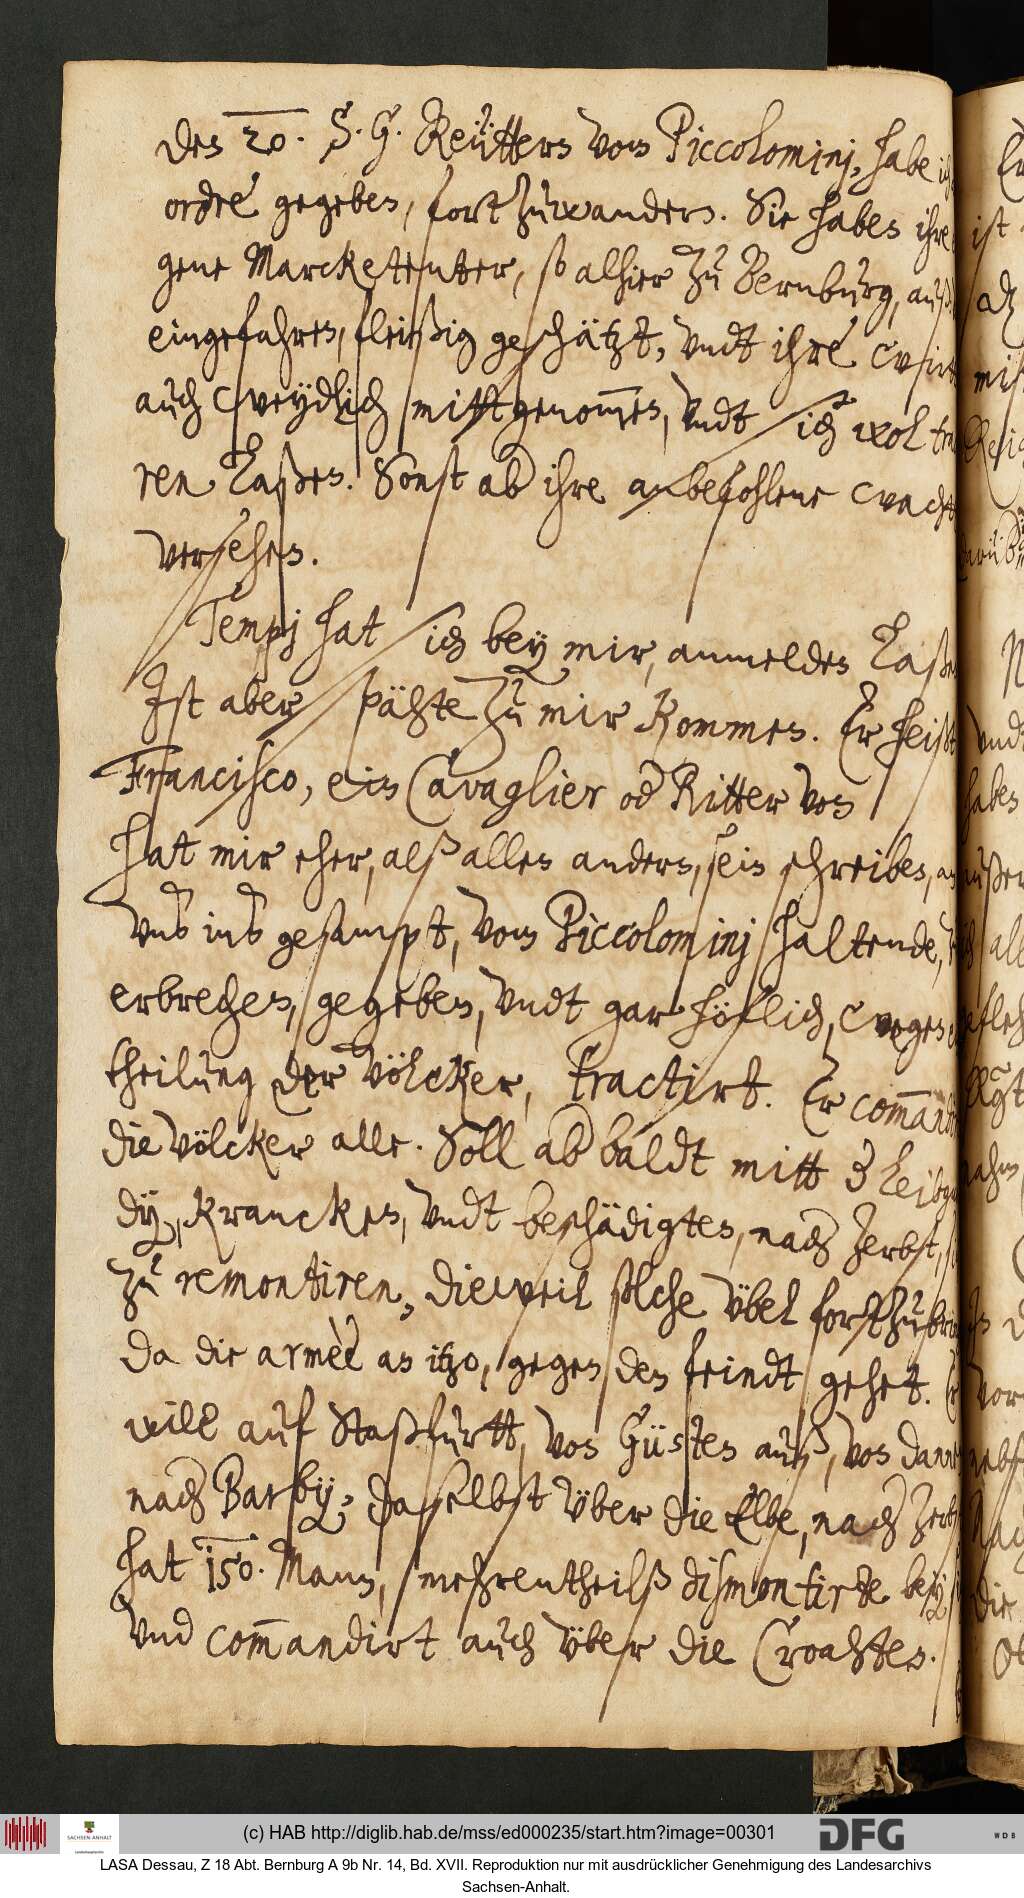 Den 20. S. G. Reütters vom Piccolominj, habe ich
ordre gegeben, fort zu wandern. Sie haben ihre ei¬
gene Marcketenter, so alhier zu Bernburg, auß¬
eingefahren, fleißig geschätzt, undt ihre wirte
auch weydlich mittgenom̅en, undt sich wol trac¬
ren laßen. Sonst ab ihre anbefohlene wacht
versehen.
Tempj hat sich bey mir, anmelden laßen
Ist aber spähte zu mir kommen. Er heißt
Francisco, ein Cavaglier od Ritter von
hat mir eher, alß allen andern, sein schreiben, an
unß inß gesampt, vom Piccolominj haltende,
erbrechen, gegeben, undt gar höflich, wegen
theilung der völcker, tractirt. Er com̅andirt
die völcker alle. Soll ab baldt mitt 3 Leibgu¬
dÿ, Krancken, undt beschädigten, nach Zerbst,
zu remontiren, dieweil solche übel fortzubrin
da die armèe an itzo, gegen den feindt gehet. Er
will auf Staßfurtt, von Güsten auß, von dann
nach Barbÿ, daselbst über die Elbe, nach Zerbst
hat 150. Mann, mehrentheilß dismontirte beÿ
und com̅andirt auch über die Croahten.
Er
ist
mis
undt
haben
außer
all
vor
nebst
Nach
die
(c) HAB http://diglib.hab.de/mss/ed000235/start.htm?image=00301
SACHSEN-ANHALT
Landesarchiv
DFG
WDB
LASA Dessau, Z 18 Abt. Bernburg A 9b Nr. 14, Bd. XVII. Reproduktion nur mit ausdrücklicher Genehmigung des Landesarchivs
Sachsen-Anhalt.